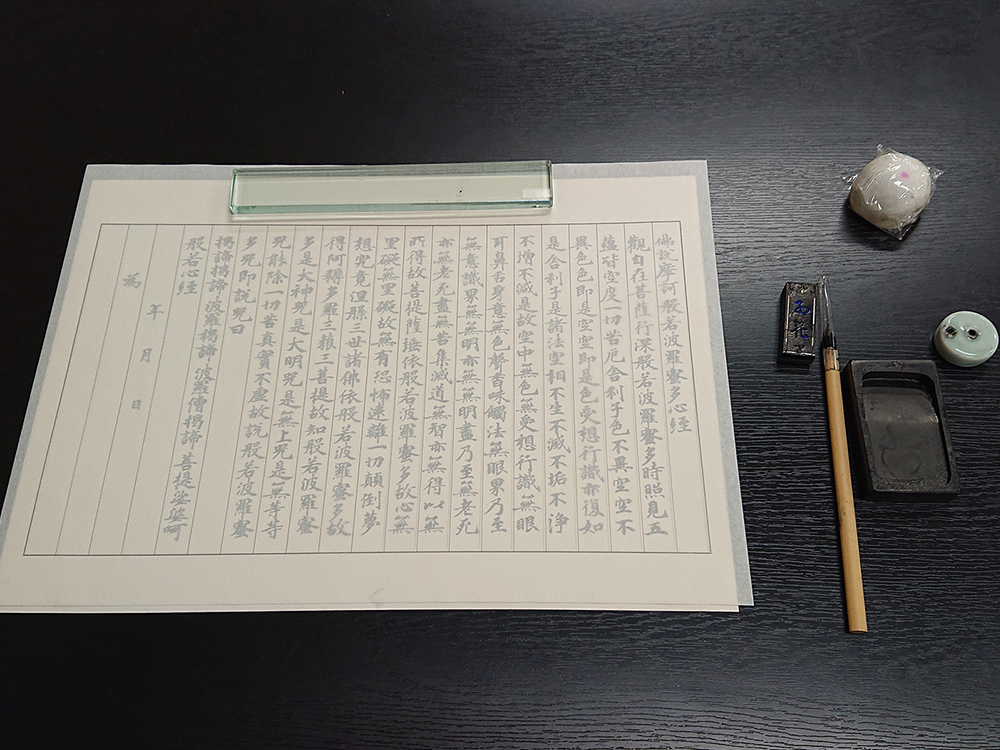 佛説摩訶般若波羅蜜多心経
觀自在菩薩行深般若波羅蜜多時照見五
蘊皆空度一切苦厄舎利子色不異空空不
異色色即是空空即是色受想行識亦復如
是舎利子是諸法空相不生不滅不垢不浄
不増不減是故空中無色無受想行識無眼
耳鼻舌身意無色聲香味觸法無眼界乃至
無意識界無無明亦無無明盡乃至無老死
亦無老死盡無苦集滅道無智亦無得以無
所得故菩提薩埵依般若波羅蜜多故心無
罣礙無罣礙故無有恐怖遠離一切顛倒夢
想究竟涅槃三世諸佛依般若波羅蜜多故
得阿耨多羅三藐三菩提故知般若波羅蜜
多是大神咒是大明咒是無上咒是無等等
咒能除一切苦真實不虚故説般若波羅蜜
多咒即説咒曰
揭諦揭諦 波羅揭諦 波羅僧揭諦 菩提娑婆呵
般若心経
年 月 日
為